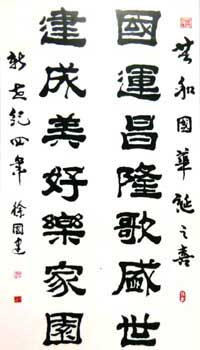 共和國華誕之喜
國運昌隆歌盛世
建成美好樂家園
新世紀四年 徐國建